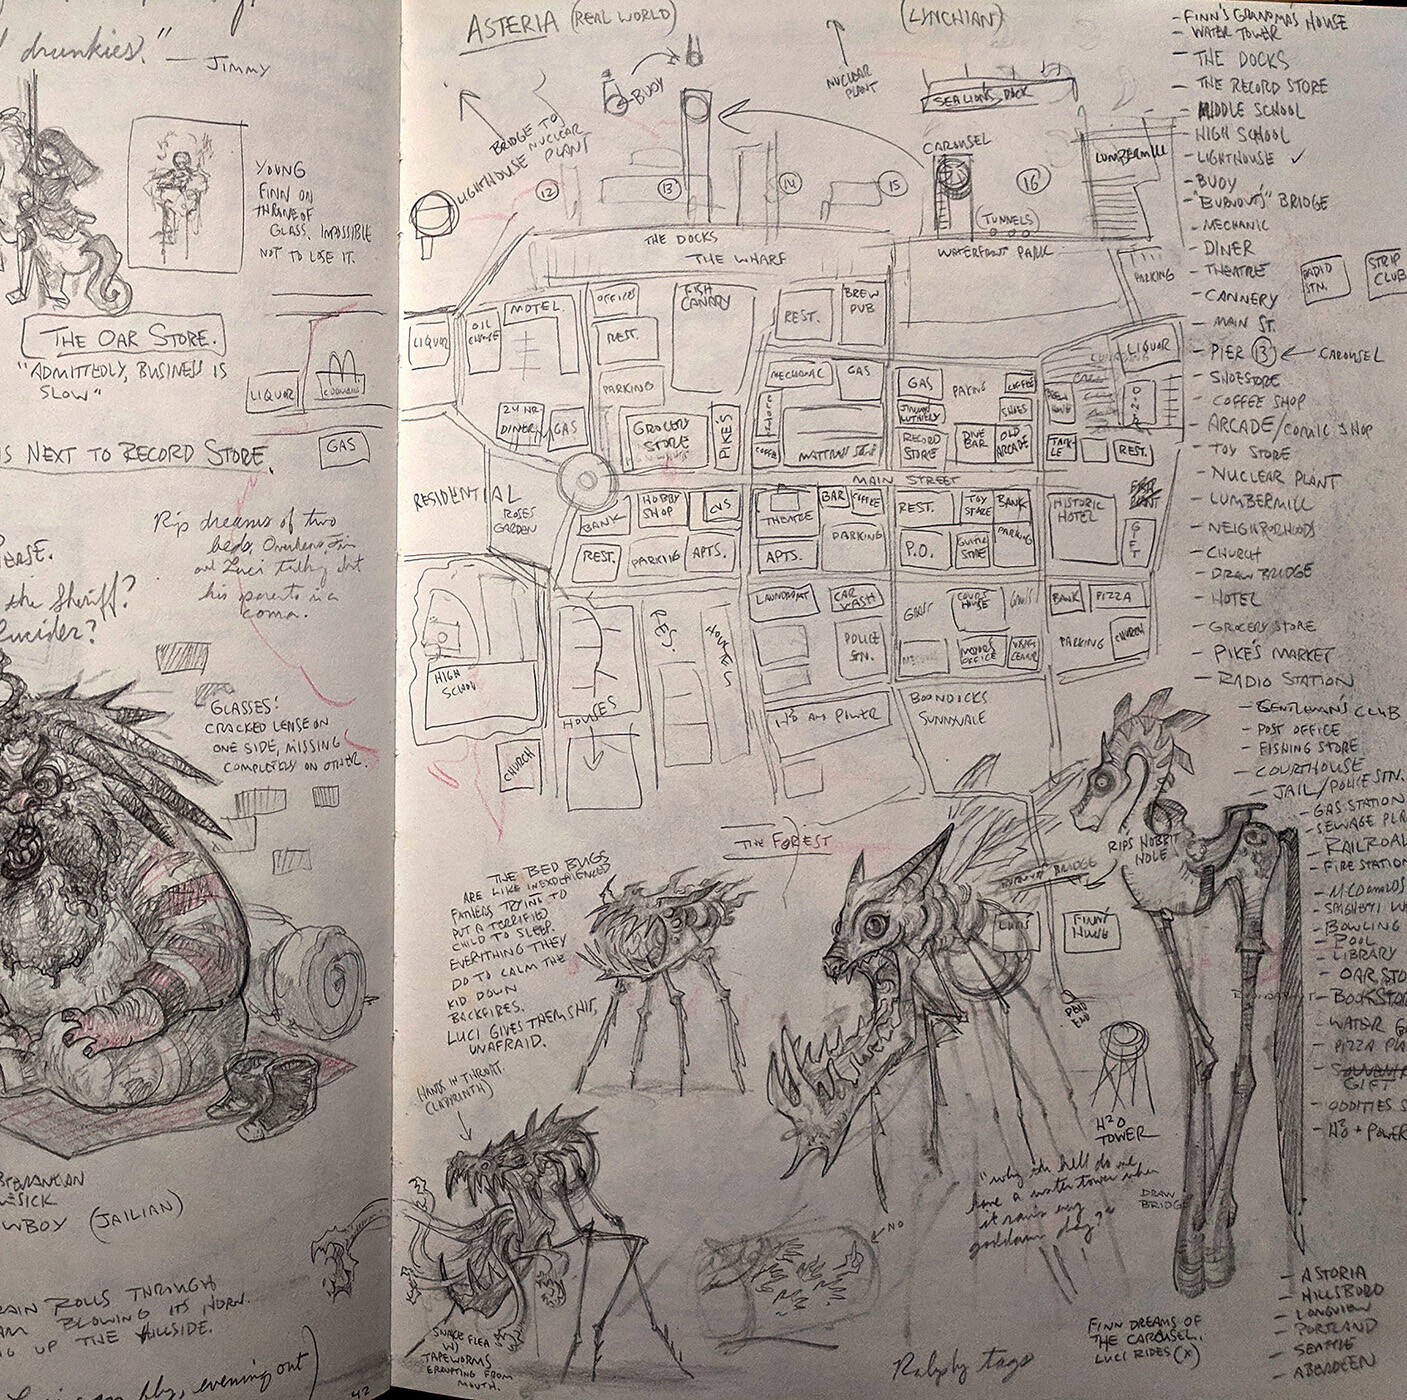 drunkies." — JIMMY
YOUNG
FINN ON
THRONE OF
GLASS. IMPOSSIBLE
NOT TO LOSE IT.
THE OAR STORE.
"ADMITTEDLY, BUSINESS IS
SLOW"
LIQUOR
GAS
IS NEXT TO RECORD STORE.
Rip dreams of two
beds. Overhears Fin
and Luci talking that
his parents in a
coma.
the Sheriff?
GLASSES:
CRACKED LENSE ON
ONE SIDE, MISSING
COMPLETELY ON OTHER.
(JAILIAN)
ROLLS THROUGH
BLOWING ITS HORN.
UP THE HILLSIDE.
evening out)
42
ASTERIA (REAL WORLD)
(LYNCHIAN)
BUOY
NUCLEAR
PLANT
BRIDGE TO
NUCLEAR
PLANT
LIGHTHOUSE
SEA LIONS DOCK
CAROUSEL
LUMBERMILL
12
13
14
15
16
(TUNNELS)
THE DOCKS
THE WHARF
WATERFRONT PARK
PARKING
LIQUOR
OIL
CHANGE
MOTEL
OFFICES
REST.
PARKING
FISH
CANARY
REST.
BREW
PUB
MECHANIC
GAS
GAS
COFFEE
SHOES
LIQUOR
24 HR
DINER
GAS
GROCERY
STORE
PIKE'S
RECORD
STORE
DIVE
BAR
OLD
ARCADE
REST.
MAIN STREET
RESIDENTIAL
ROSES
GARDEN
BANK
HOBBY
SHOP
CVS
THEATRE
BAR
COFFEE
REST.
TOY
STORE
BANK
HISTORIC
HOTEL
GIFT
REST.
PARKING
APTS.
APTS.
PARKING
P.O.
GUITAR
STORE
PARKING
HIGH
SCHOOL
HOUSES
HOUSES
LAUNDROMAT
CAR
WASH
COURT
HOUSE
BANK
PIZZA
POLICE
STN.
OFFICE
PARKING
CHURCH
CHURCH
H²O AND POWER
BOONDICKS
SUNNYVALE
THE FOREST
- FINN'S GRANDMA'S HOUSE
- WATER TOWER
- THE DOCKS
- THE RECORD STORE
- MIDDLE SCHOOL
- HIGH SCHOOL
- LIGHTHOUSE ✓
- BUOY
- "BURNOUTS" BRIDGE
- MECHANIC
- DINER
- THEATRE
- CANNERY
- MAIN ST.
- PIER 13 ← CAROUSEL
- SHOESTORE
- COFFEE SHOP
- ARCADE/COMIC SHOP
- TOY STORE
- NUCLEAR PLANT
- LUMBERMILL
- NEIGHBORHOODS
- CHURCH
- DRAW BRIDGE
- HOTEL
- GROCERY STORE
- PIKE'S MARKET
- RADIO STATION
- GENTLEMAN'S CLUB
- POST OFFICE
- FISHING STORE
- COURTHOUSE
- JAIL/POLICE STN.
- GAS STATION
- SEWAGE PLA
- RAILROAD
- FIRE STATION
- MCDONALDS
- BOWLING
- POOL
- LIBRARY
- OAR STO
- BOOKSTOR
- WATER
- PIZZA PL
GIFT
- ODDITIES S
- H²O + POWER
RADIO
STN.
STRIP
CLUB
THE BED BUGS
ARE LIKE INEXPERIENCED
FATHERS TRYING TO
PUT A TERRIFIED
CHILD TO SLEEP.
EVERYTHING THEY
DO TO CALM THE
KID DOWN
BACKFIRES.
LUCI GIVES THEM SHIT,
UNAFRAID.
HANDS IN THROAT.
(LABYRINTH)
RIPS HOBBIT
HOLE
BRIDGE
FINN'S
HOUSE
DEAD
END
H²O
TOWER
"why the hell do we
have a water tower when
it rains every
goddamn day?"
DRAW
BRIDGE
NO
W/
TAPEWORMS
ERUPTING FROM
MOUTH.
FINN DREAMS OF
THE CAROUSEL.
LUCI RIDES (X)
- ASTORIA
- HILLSBORO
- LONGVIEW
- PORTLAND
- SEATTLE
- ABERDEEN